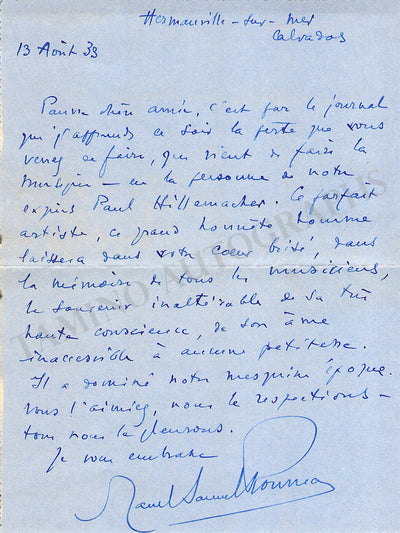 Hermanville-sur-mer
Calvados
13 Août 33
Pauvre chère amie, c'est par le journal
que j'apprends ce soir la perte que vous
venez de faire, que vient de faire la
musique — en la personne de notre
Paul Hillemacher. Ce parfait
artiste, ce grand honnête homme
laissera dans votre cœur brisé, dans
la mémoire de tous les musiciens,
le souvenir inaltérable de sa très
haute conscience, de son âme
inaccessible à aucune petitesse.
Il a dominé notre mesquine époque.
Vous l'aimiez, nous le respections —
tous nous le pleurons.
Je vous embrasse
Marcel Samuel Rousseau
TAMINO AUTOGRAPHS